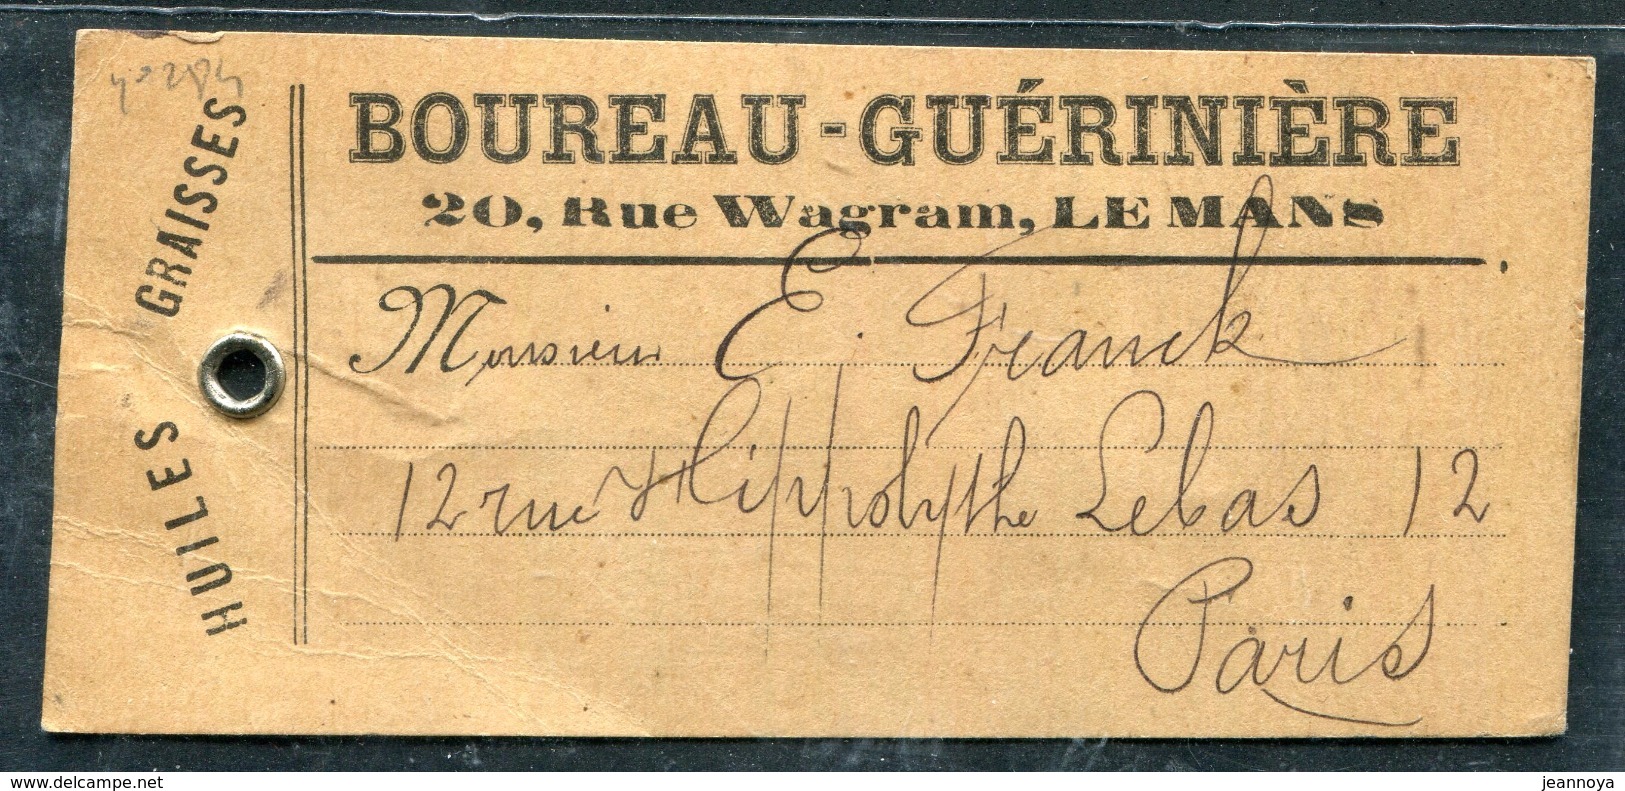 BOUREAU-GUÉRINIÈRE
20, Rue Wagram, LE MANS
HUILES GRAISSES
Monsieur E. Franck
12 rue Hippolythe Lebas 12
Paris
delcampe.net
jeannoya